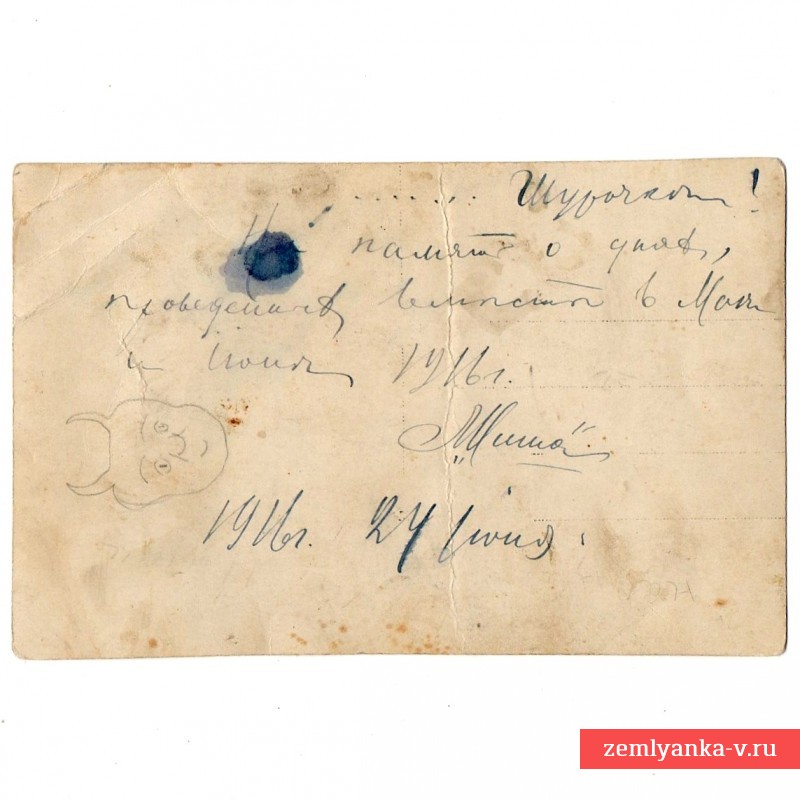 ....... Шурочкѣ!
На память о дняхъ,
проведенныхъ вмѣстѣ въ Маѣ
и Іюнѣ 1916 г.
„Миша"
1916 г. 24 Іюня.
zemlyanka-v.ru